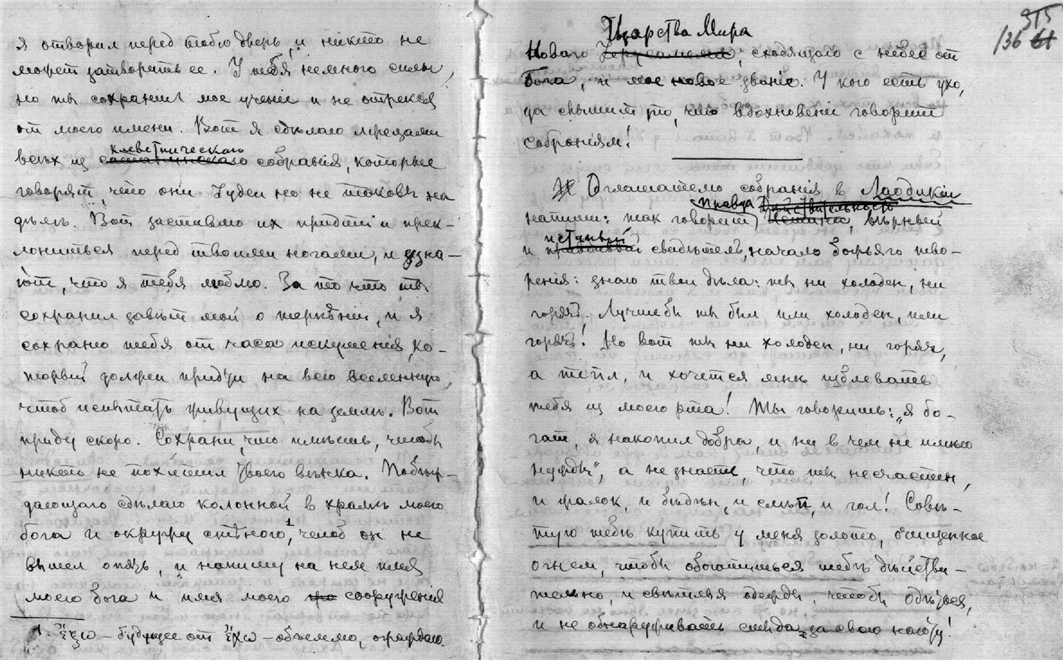 я отворил перед тобою дверь, и никто не
может затворить ее. У тебя немного силы,
но ты сохранил мое учение и не отрекся
от моего имени. Вот я сделаю мерзкими
всех из
клеветнического
собрания, которые
говорят, что они Іудеи но не таковы на
дѣлѣ. Вот заставлю их прийти и прек-
лониться перед твоими ногами, и узна-
ют, что я тебя люблю. За то что ты
сохранил завѣт мой о терпѣніи, и я
сохраню тебя от часа искушения, ко-
торый должен придти на всю вселенную,
чтоб испытать живущих на землѣ. Вот
приду скоро. Сохрани, что имѣешь, чтобы
никто не похитил твоего вѣнка. Побѣж-
дающаго сдѣлаю колонной в храмѣ моего
бога и окружу стѣною,¹ чтоб он не
вышел опять, и напишу на нем имя
моего бога и имя моего сооружения
1. ἕξω – будущее от ἔχω – объемлю, ограждаю.
315
136 61
Царства Мира
Новаго Іерусалима, сходящаго с небес от
бога, и мое новое званіе. У кого есть ухо,
да слышит то, что вдохновение говорит
собраниям!
Оглашателю собрания в Лаодикіи
правда действительность
напиши: так говорит, вѣрный
истинный
и свидѣтель, начало божьяго тво-
рения: знаю твои дѣла: ты ни холоден, ни
горяч. Лучше бы ты был или холоден, или
горяч! Но вот ты ни холоден, ни горяч,
а тепл, и хочется мнѣ изблевать
тебя из моего рта! Ты говоришь: „я бо-
гат, я накопил добра, и ни в чем не имѣю
нужды“, а не знаешь, что ты несчастен,
и жалок, и бѣден, и слѣп, и гол! Совѣ-
тую тебѣ купить у меня золото, очищенное
огнем, чтобы обогатиться тебѣ дѣйстви-
тельно, и свѣтлыя одежды чтобы одѣться,
и не обнаруживать стыда за свою наготу!